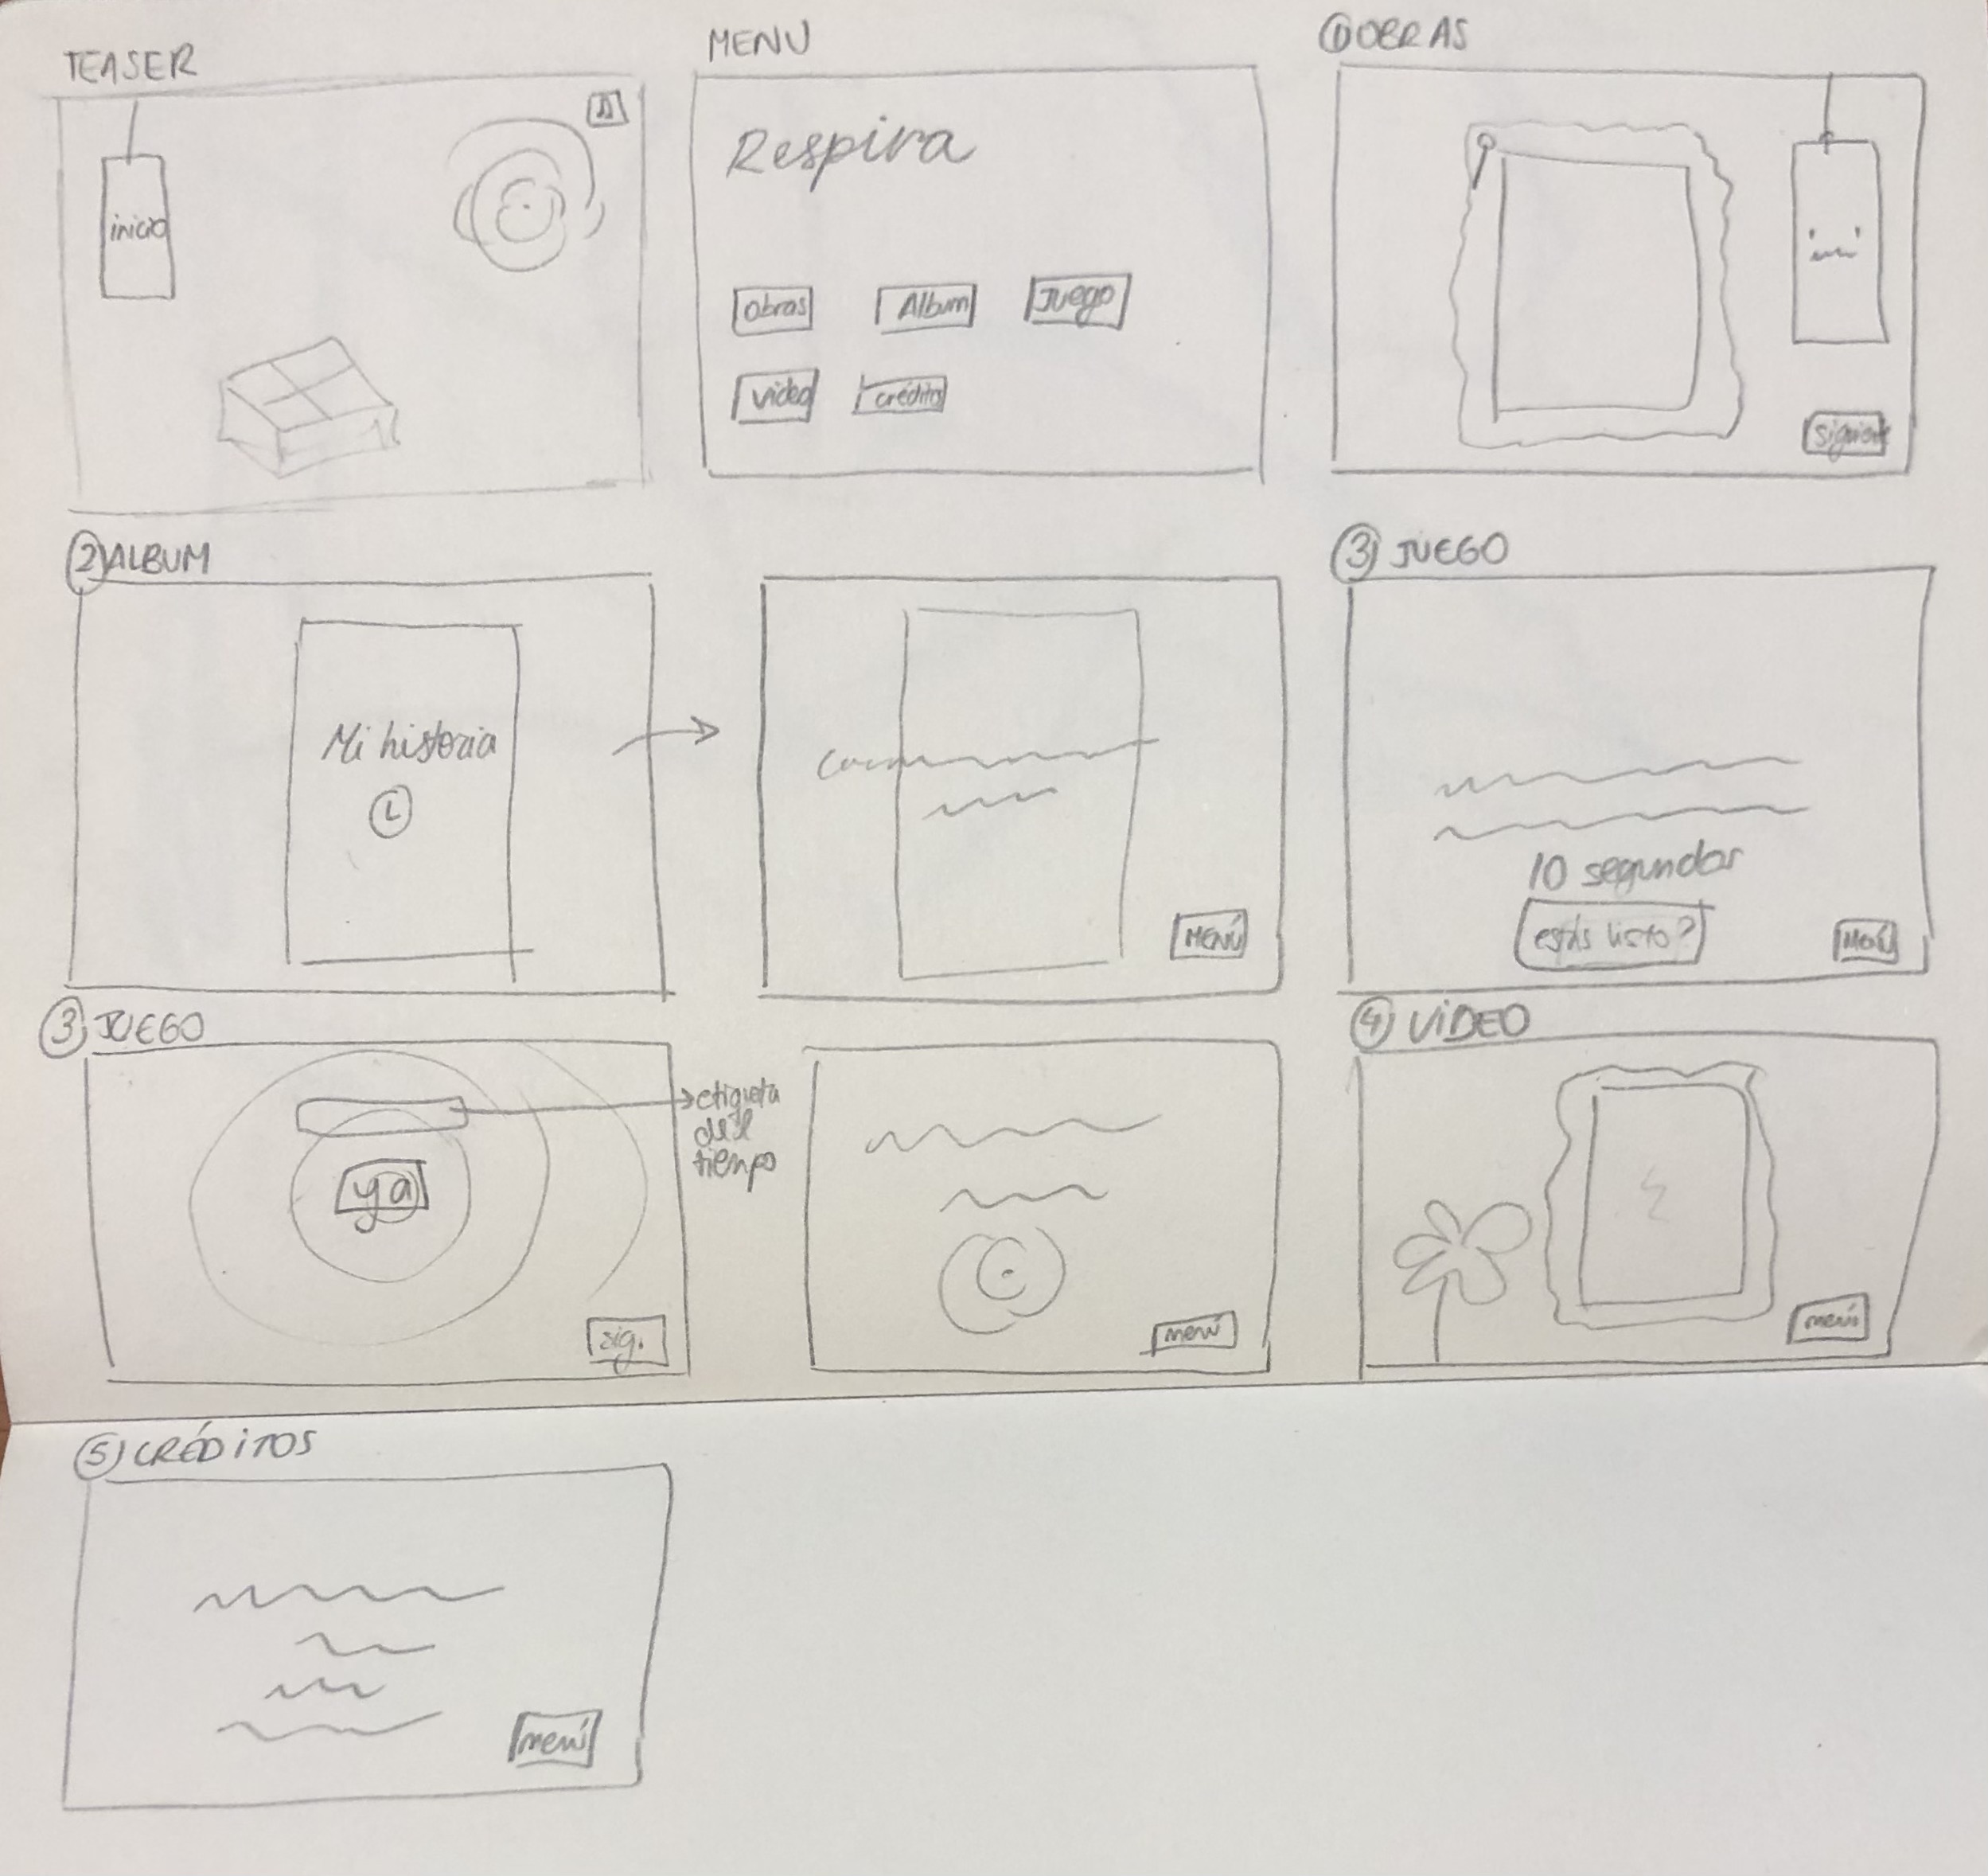 TEASER
inicio
MENU
Respira
Obras
Album
Juego
Video
créditos
① OBRAS
siguiente
② ALBUM
Mi historia
MENÚ
③ JUEGO
10 segundos
estás listo?
Menú
③ JUEGO
ya
sig.
etiqueta
del
tiempo
menú
④ VIDEO
menú
⑤ CRÉDITOS
menú